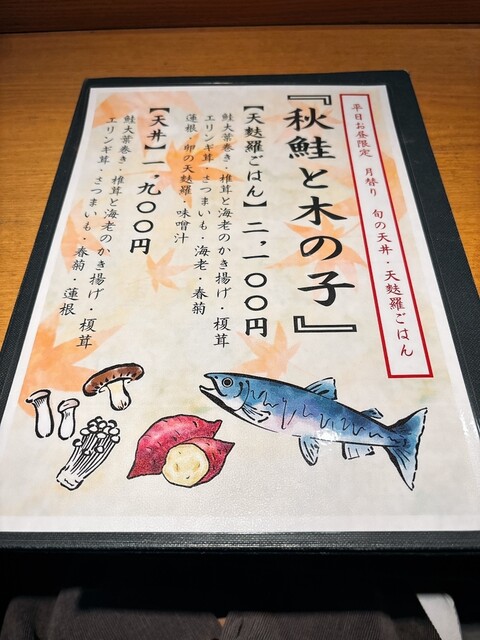 平日お昼限定 月替り 旬の天丼・天麩羅ごはん
『秋鮭と木の子』
【天麩羅ごはん】二、一〇〇円
鮭大葉巻き・椎茸と海老のかき揚げ・榎茸
エリンギ茸・さつまいも・海老・春菊
蓮根・卵の天麩羅・味噌汁
【天丼】一、九〇〇円
鮭大葉巻き・椎茸と海老のかき揚げ・榎茸
エリンギ茸・さつまいも・春菊・蓮根